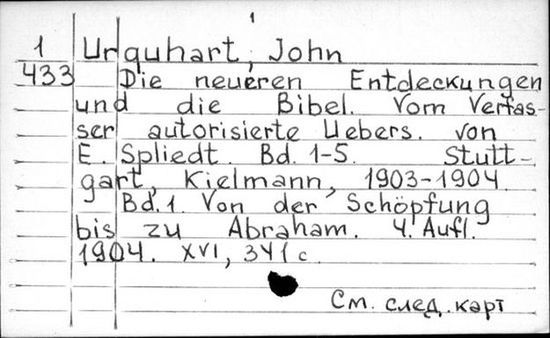 1
1 Urquhart, John
433 Die neueren Entdeckungen
und die Bibel. Vom Verfas-
ser autorisierte Uebers. von
E. Spliedt. Bd. 1-5. Stutt-
gart, Kielmann, 1903-1904.
Bd. 1. Von der Schöpfung
bis zu Abraham. 4. Aufl.
1904. XVI, 341 c.
См. след. карт